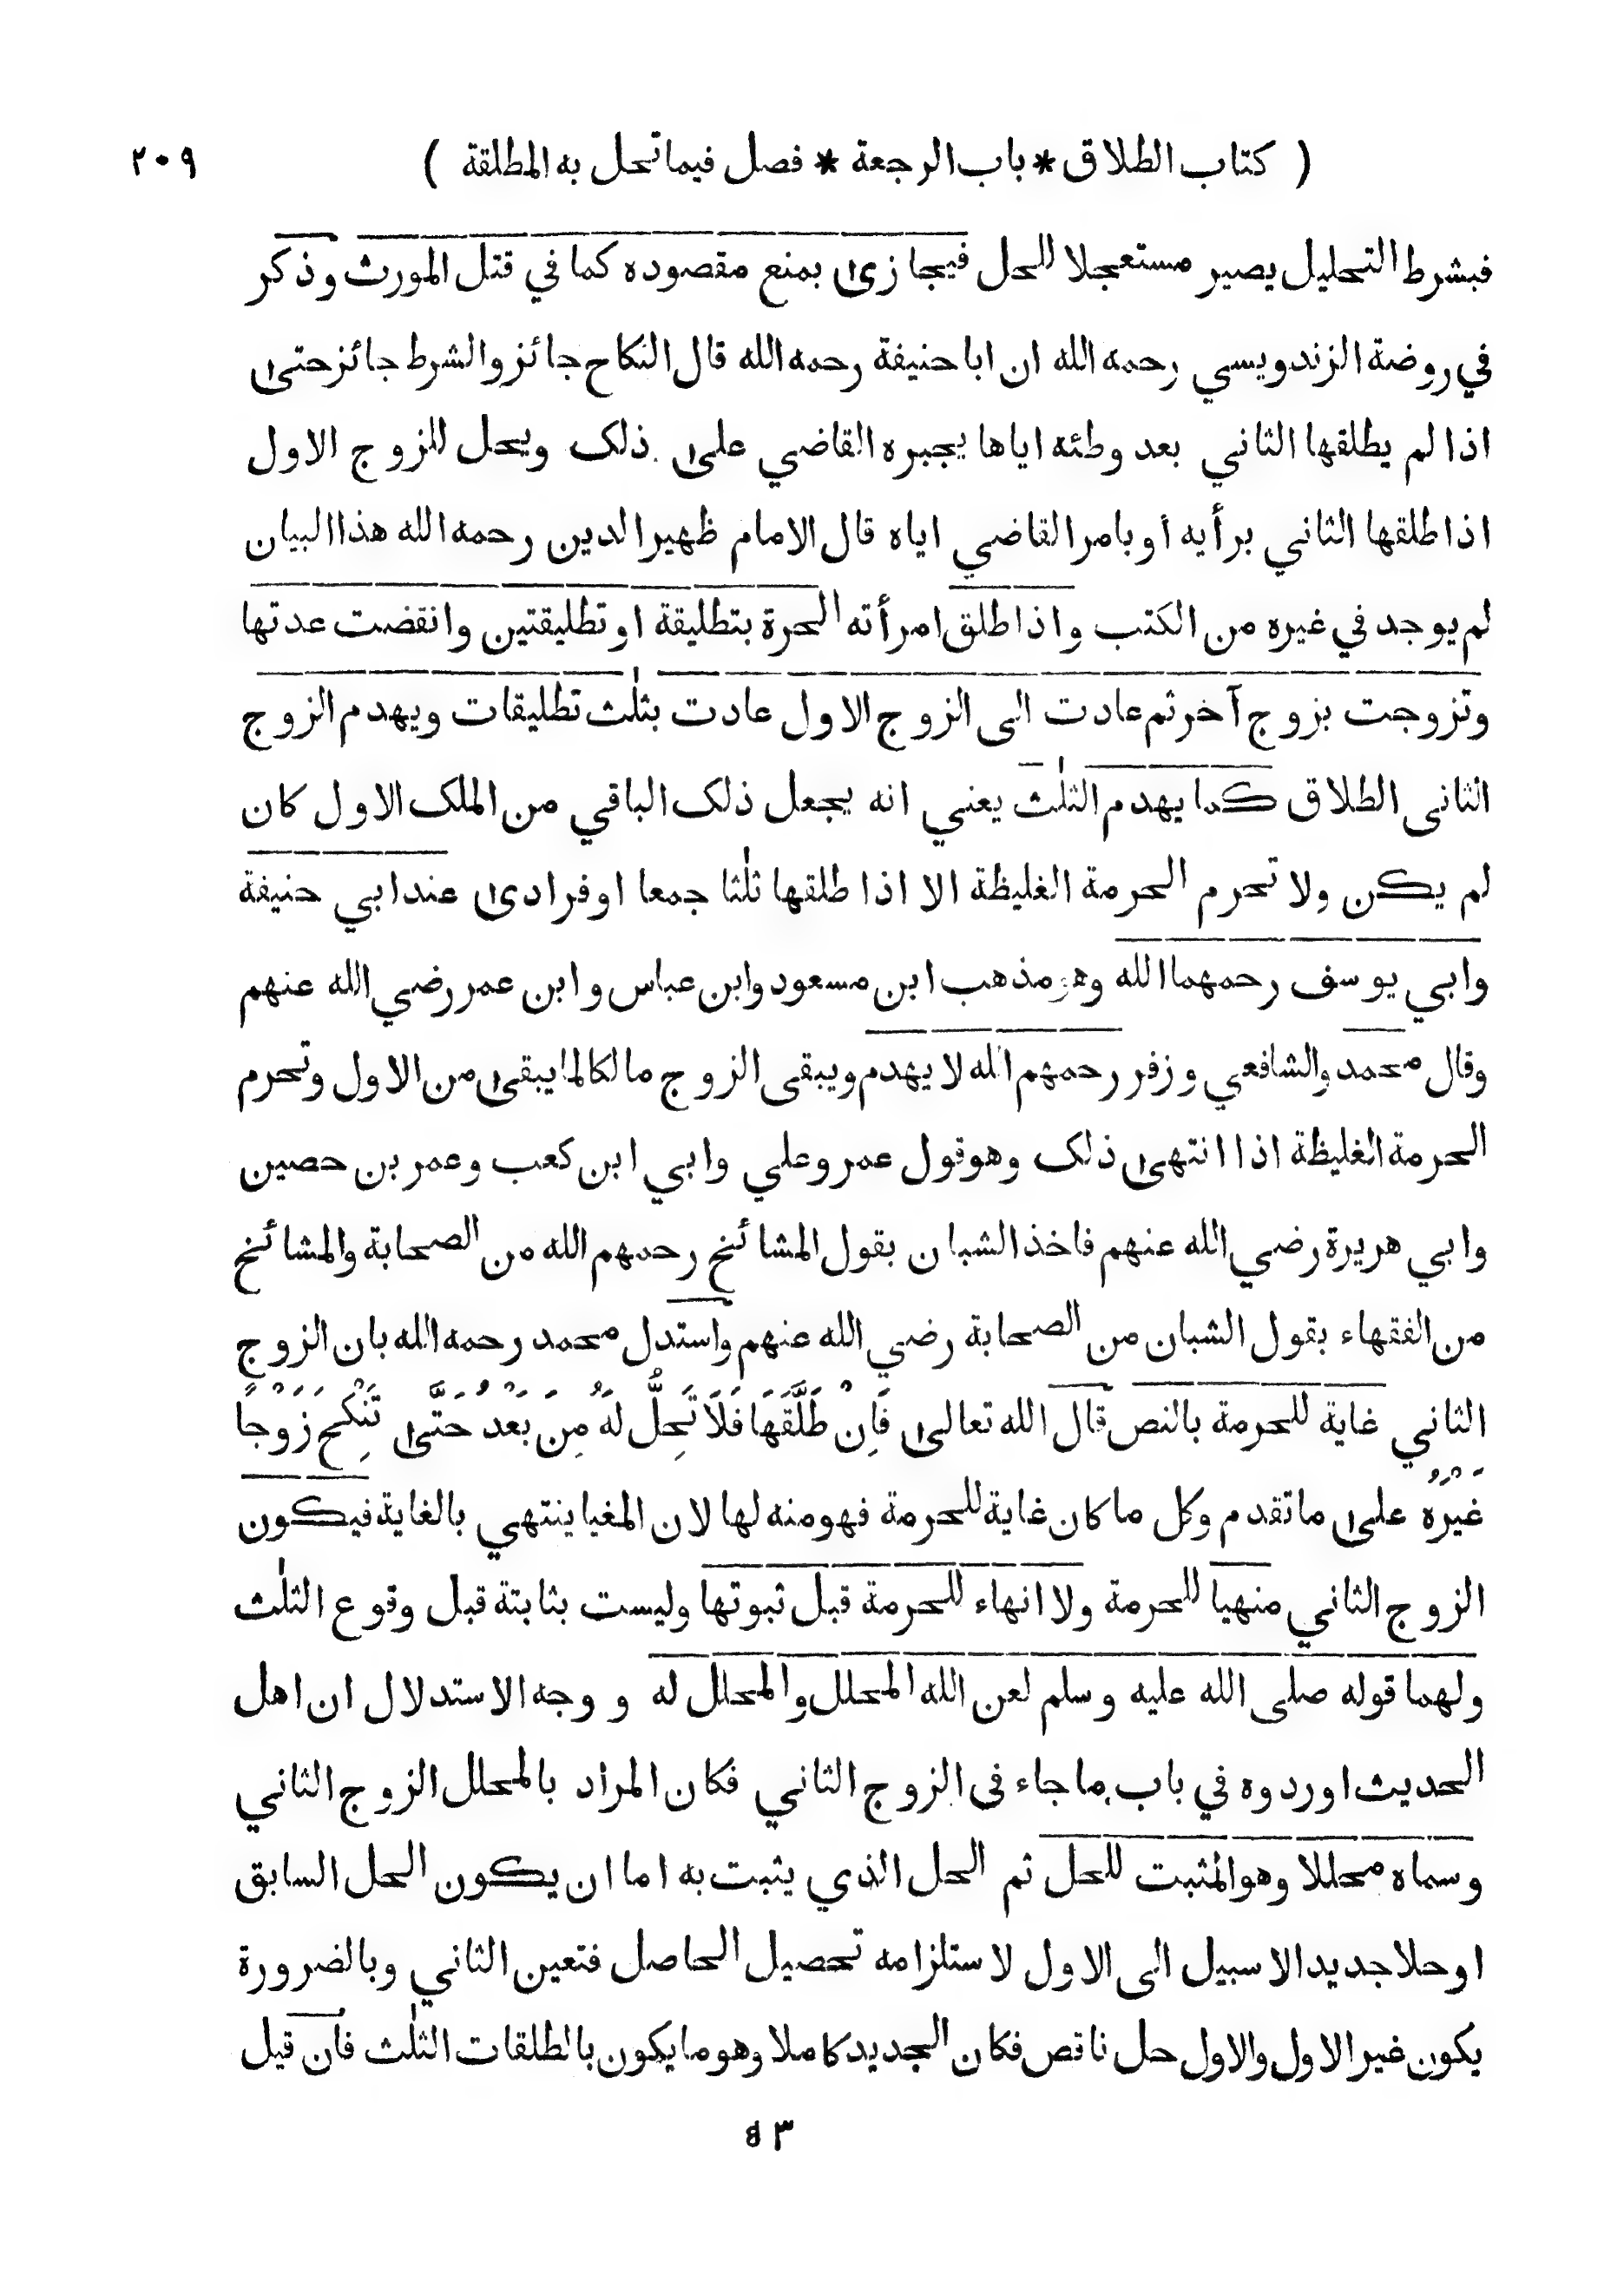 ( كتاب الطلاق * باب الرجعة * فصل فيما تحل به المطلقة ) ٢٠٩
فبشرط التحليل يصير مستعجلا للحل فيجازى بمنع مقصوده كما في قتل المورث وذكر
في روضة الزندويسي رحمه الله ان ابا حنيفة رحمه الله قال النكاح جائز والشرط جائز حتى
اذا لم يطلقها الثاني بعد وطئه اياها يجبره القاضي على ذلك ويحل للزوج الاول
اذا طلقها الثاني برأيه او بامر القاضي اياه قال الامام ظهير الدين رحمه الله هذا البيان
لم يوجد في غيره من الكتب واذا طلق امرأته الحرة بتطليقة او تطليقتين وانقضت عدتها
وتزوجت بزوج آخر ثم عادت الى الزوج الاول عادت بثلٰث تطليقات ويهدم الزوج
الثانى الطلاق كما يهدم الثلٰث يعني انه يجعل ذلك الباقي من الملك الاول كان
لم يكن ولا تحرم الحرمة الغليظة الا اذا طلقها ثلٰثا جمعا او فرادى عند ابي حنيفة
وابي يوسف رحمهما الله وهو مذهب ابن مسعود وابن عباس وابن عمر رضي الله عنهم
وقال محمد والشافعي وزفر رحمهم الله لا يهدم ويبقى الزوج مالكا لما يبقى من الاول وتحرم
الحرمة الغليظة اذا انتهى ذلك وهو قول عمر وعلي وابي ابن كعب وعمر بن حصين
وابي هريرة رضي الله عنهم فاخذ الشبان بقول المشائخ رحمهم الله من الصحابة والمشائخ
من الفقهاء بقول الشبان من الصحابة رضي الله عنهم واستدل محمد رحمه الله بان الزوج
الثاني غاية للحرمة بالنص قال الله تعالى فَاِنْ طَلَّقَهَا فَلَا تَحِلُّ لَهُ مِنْ بَعْدُ حَتَّى تَنْكِحَ زَوْجًا
غَيْرَهُ على ما تقدم وكل ما كان غاية للحرمة فهو منه لها لان المغيا ينتهي بالغاية فيكون
الزوج الثاني منهيا للحرمة ولا انهاء للحرمة قبل ثبوتها وليست بثابتة قبل وقوع الثلٰث
ولهما قوله صلى الله عليه وسلم لعن الله المحلل والمحلل له و وجه الاستدلال ان اهل
الحديث اوردوه في باب ما جاء فى الزوج الثاني فكان المراد بالمحلل الزوج الثاني
وسماه محللا وهو المثبت للحل ثم الحل الذي يثبت به اما ان يكون الحل السابق
او حلا جديدا لا سبيل الى الاول لاستلزامه تحصيل الحاصل فتعين الثاني وبالضرورة
يكون غير الاول والاول حل ناقص فكان الجديد كاملا وهو ما يكون بالطلقات الثلٰث فان قيل